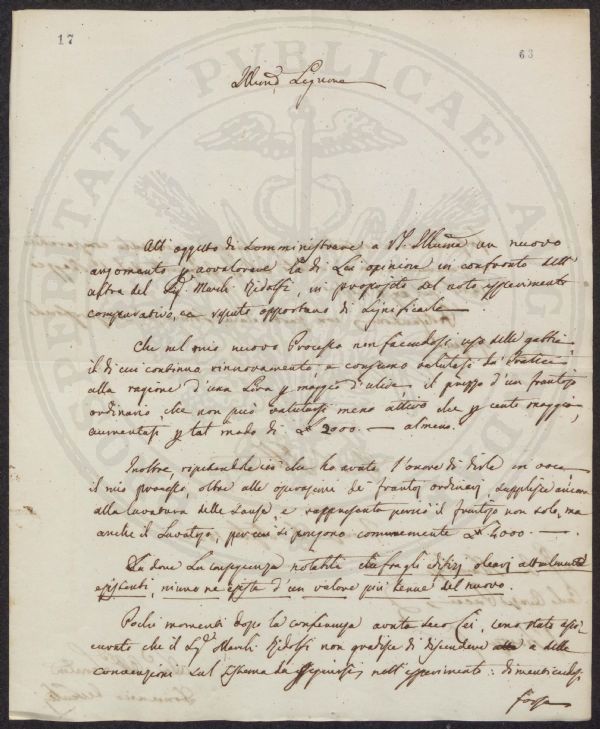 17
63
Illmo Signore
All' oggetto di somministrare a V.S. Illma un nuovo
argomento p avvalorare la di Lei opinione in confronto dell'
altra del Sig. March Ridolfi, in proposito del noto esperimento
comparativo, ea reputo opportuno di significarle
Che nel mio nuovo Processo non facendosi uso delle gabbie
il di cui continuo rinnuovamento e consumo valutasi da' Pratici
alla ragione d'una Lira p moggio d'ulive il prezzo d'un frantojo
ordinario che non può valutarsi meno attivo che p cento moggia,
aumentasi p tal modo di 2000. — almeno.
Inoltre, ripetendole ciò che ho avuto l'onore di dirle in voce
il mio processo, oltre alle operazioni de' frantoj ordinarj, supplisce ancora
alla lavatura delle Sanse e rappresenta perciò il frantojo non solo, ma
anche il Lavatojo, per cui si pongono comunemente 4000 — .
La dove La conseguenza notabile che fragli edifizj olearj attualmente
esistenti, niuno ne esista d'un valore più tenue del nuovo.
Pochi momenti dopo la conferenza avuta seco Lei, sono stato assi-
curato che il Sig. March Ridolfi non gradisce di discendere a delle
convenzioni sul sistema da seguirsi nell' esperimento: dimenticandosi
forse
PVBLICAE